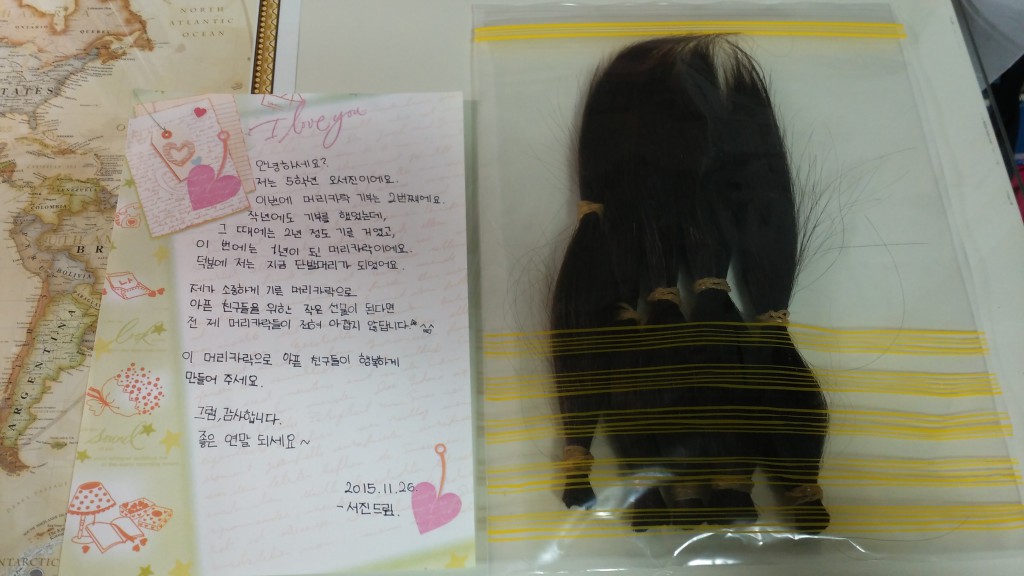 NORTH
ATLANTIC
OCEAN
COLOMBIA
BR
BOLIVIA
ARGENTINA
I love you
안녕하세요?
저는 5학년 오서진이에요.
이번에 머리카락 기부는 2번째에요.
작년에도 기부를 했었는데,
그 때에는 2년 정도 기른 거였고,
이 번에는 1년이 된 머리카락이에요.
덕분에 저는 지금 단발머리가 되었어요.
제가 소중하게 기른 머리카락으로
아픈 친구들을 위한 작은 선물이 된다면
전 제 머리카락들이 전혀 아깝지 않답니다^^
이 머리카락으로 아픈 친구들이 행복하게
만들어 주세요.
그럼, 감사합니다.
좋은 연말 되세요~
2015.11.26.
-서진드림.